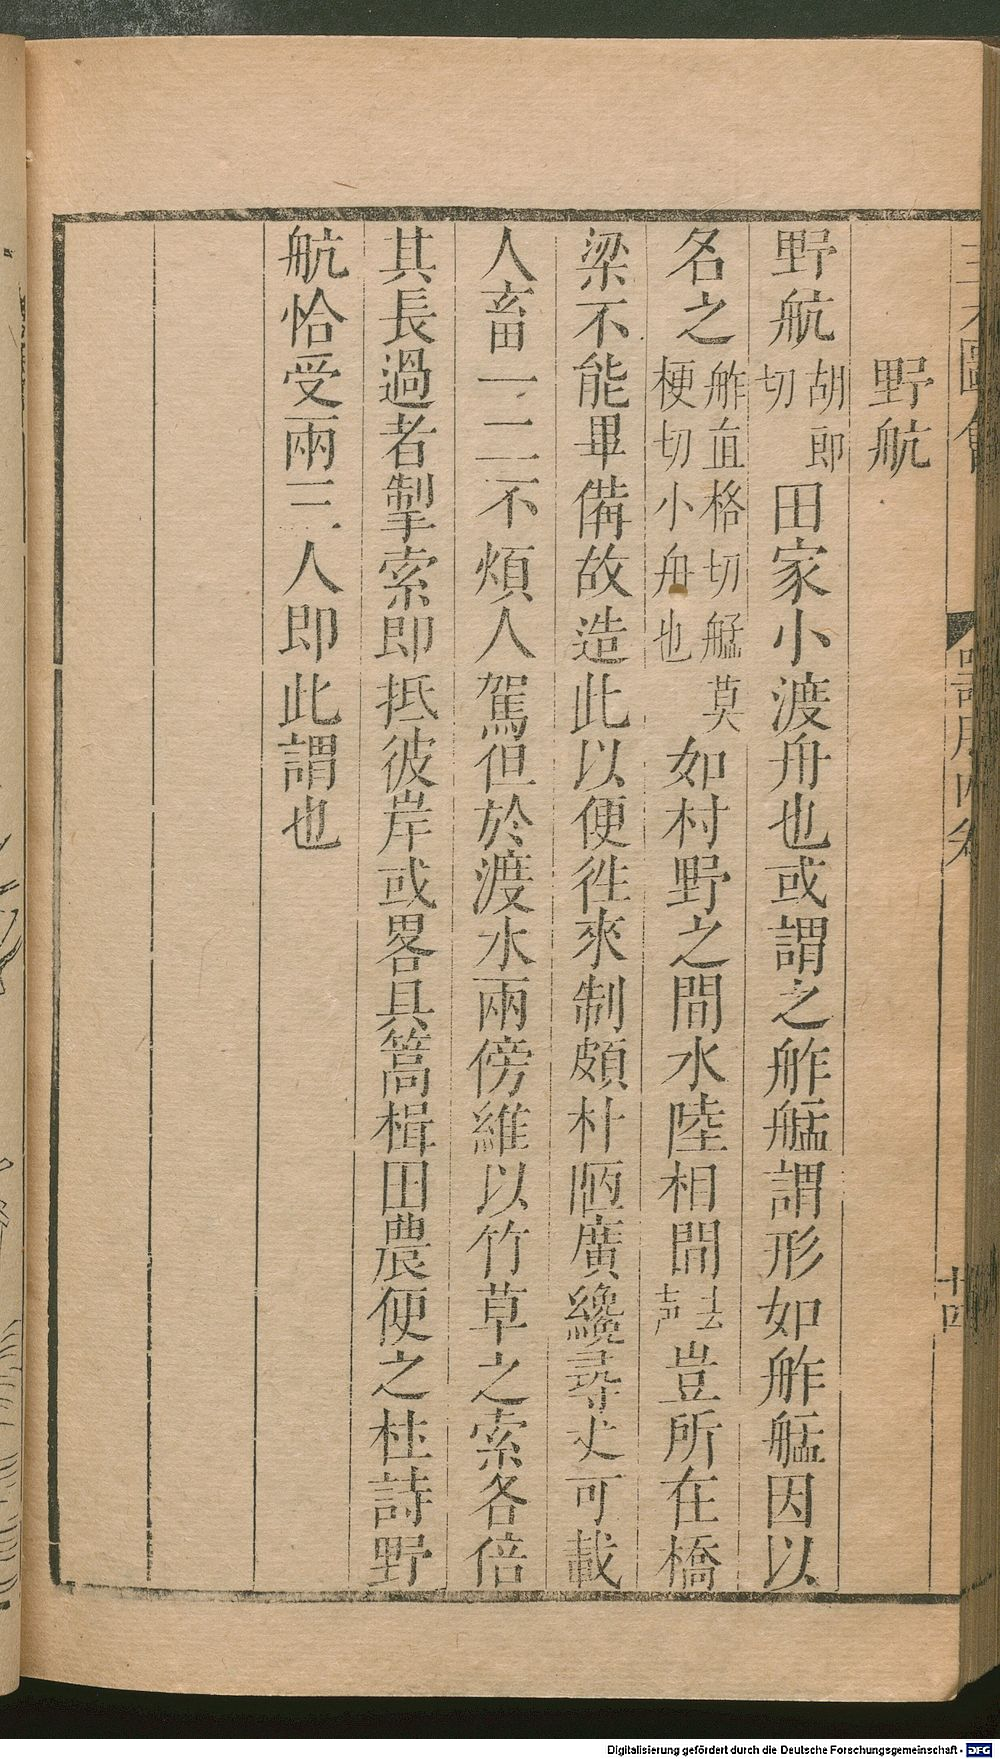 三才圖會
器用四卷
十四
野航
野航胡郎切田家小渡舟也或謂之舴艋謂形如舴艋因以
名之舴直格切艋莫梗切小舟也如村野之間水陸相間去声豈所在橋
梁不能畢備故造此以便徃來制頗朴陋廣纔尋丈可載
人畜一二不煩人駕但於渡水兩傍維以竹草之索各倍
其長過者掣索即抵彼岸或畧具篙楫田農便之杜詩野
航恰受兩三人即此謂也
Digitalisierung gefördert durch die Deutsche Forschungsgemeinschaft - DFG